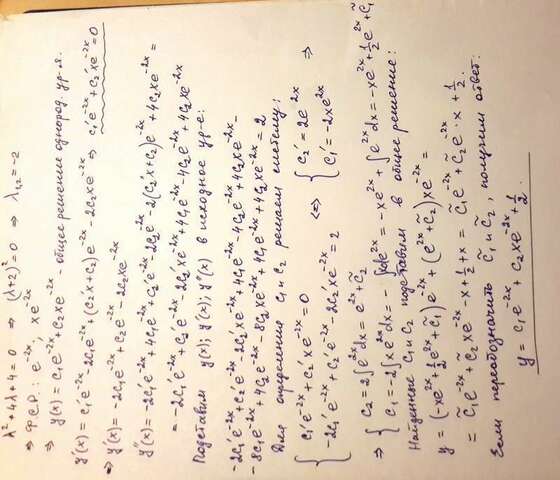 λ²+4λ+4=0 ⇒ (λ+2)²=0 ⇒ λ₁,₂=-2
⇒ Ф.С.Р.: e⁻²ˣ, xe⁻²ˣ
⇒ y(x)=c₁e⁻²ˣ+c₂xe⁻²ˣ - общее решение однород. ур-я.
y'(x)=c₁'e⁻²ˣ-2c₁e⁻²ˣ+(c₂'x+c₂)e⁻²ˣ-2c₂xe⁻²ˣ ⇒ c₁'e⁻²ˣ+c₂'xe⁻²ˣ=0
⇒ y'(x)=-2c₁e⁻²ˣ+c₂e⁻²ˣ-2c₂xe⁻²ˣ
y''(x)=-2c₁'e⁻²ˣ+4c₁e⁻²ˣ+c₂'e⁻²ˣ-2c₂e⁻²ˣ-2(c₂'x+c₂)e⁻²ˣ+4c₂xe⁻²ˣ=
=-2c₁'e⁻²ˣ+c₂'e⁻²ˣ-2c₂'xe⁻²ˣ+4c₁e⁻²ˣ-4c₂e⁻²ˣ+4c₂xe⁻²ˣ
Подставим y(x); y'(x); y''(x) в исходное ур-е:
-2c₁'e⁻²ˣ+c₂'e⁻²ˣ-2c₂'xe⁻²ˣ+4c₁e⁻²ˣ-4c₂e⁻²ˣ+4c₂xe⁻²ˣ-
-8c₁e⁻²ˣ+4c₂e⁻²ˣ-8c₂xe⁻²ˣ+4c₁e⁻²ˣ+4c₂xe⁻²ˣ=2
Для определения c₁ и c₂ решаем систему:
{ c₁'e⁻²ˣ+c₂'xe⁻²ˣ=0
-2c₁'e⁻²ˣ+c₂'e⁻²ˣ-2c₂'xe⁻²ˣ=2 <=> { c₂'=2e²ˣ
c₁'=-2xe²ˣ ⇒
⇒ { c₂=2∫e²ˣdx=e²ˣ+c̃₂
c₁=-2∫xe²ˣdx=-∫xde²ˣ=-xe²ˣ+∫e²ˣdx=-xe²ˣ+½e²ˣ+c̃₁
Найденные c₁ и c₂ подставим в общее решение:
y=(-xe²ˣ+½e²ˣ+c̃₁)e⁻²ˣ+(e²ˣ+c̃₂)xe⁻²ˣ=
=c̃₁e⁻²ˣ+c̃₂xe⁻²ˣ-x+½+x=c̃₁e⁻²ˣ+c̃₂e⁻²ˣ·x+½.
Если переобозначить c̃₁ и c̃₂, получим ответ:
y=c₁e⁻²ˣ+c₂xe⁻²ˣ+½.